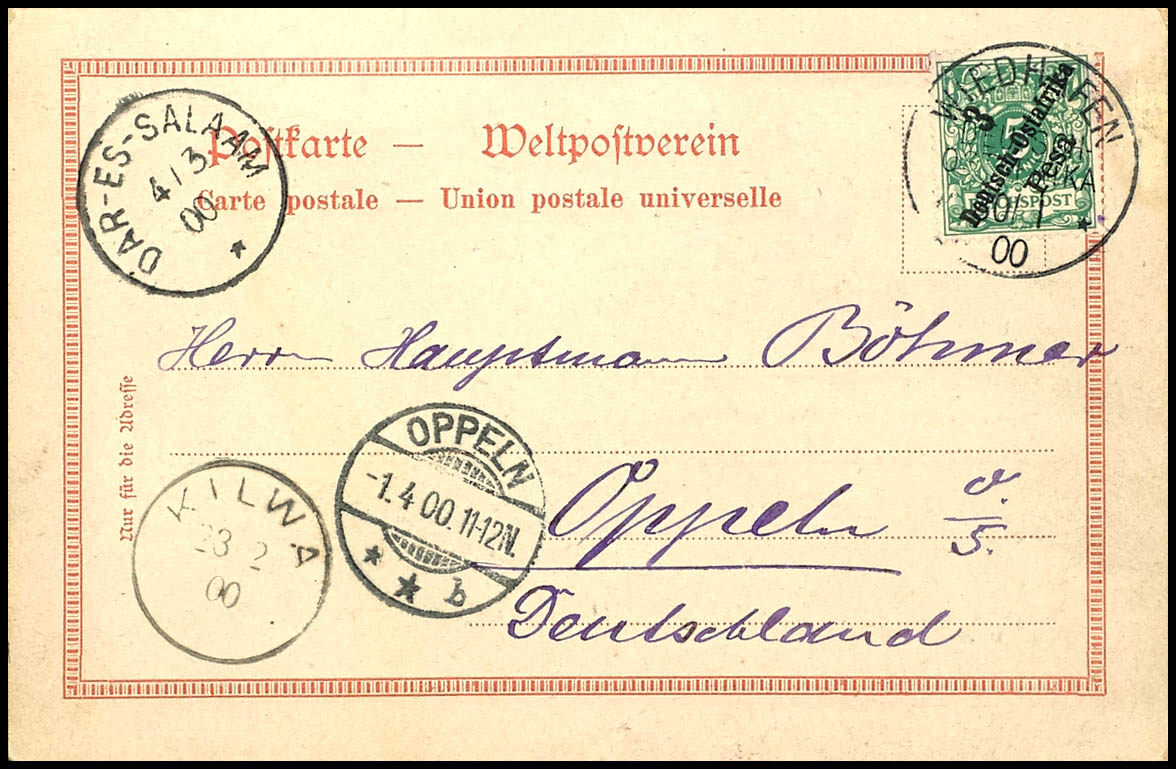 Postkarte — Weltpostverein
Carte postale — Union postale universelle
DAR-ES-SALAAM
4/3
00
WIEDHAFEN
00
3
Pesa
Deutsch-Ostafrika
5
REICHSPOST
Herrn Hauptmann Böhmer
Nur für die Adresse
OPPELN
-1.4.00.11-12N.
b
Oppeln o/S.
KILWA
23 2
00
Deutschland